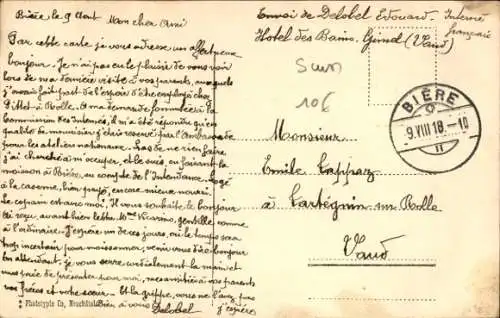 Bière le 9 Aout Mon cher Ami
Par cette carte je vous adresse un affectueux
bonjour. Je n'ai pas eu le plaisir de vous voir
lors de ma dernière visite à vos parents, auxquels
j'avais fait part de l'espoir d'être employé chez
à Rolle. A ma demande formulée à la
Commission des Internés, il m'a été répondu qu'en
qualité de menuisier j'étais réservé par l'Ambassade
pour les ateliers nationaux. Las de ne rien faire,
j'ai cherché à m'occuper, et le suis, en faisant la
moisson à Bière, au compte de l'Intendance. Logé
à la caserne, bien payé, encore mieux nourri,
le copain est ainsi moi. Il vous souhaite le bonjour
Ai reçu, avant hier lettre, Mme gentille comme
à l'ordinaire. J'espère un de ces jours, où le temps sera
trop incertain pour moissonner, venir vous dire bonjour
En attendant, je vous serre cordialement la main et
vous prie de présenter pour moi, mes amitiés à vos parents
vos frères et votre sœur. Et la grippe, vous ne l'avez pas
Bien à vous Delobel j'espère
Phototypie Co, Neuchâtel
Envoi de Delobel Edouard - Interné
français
Hôtel des Bains, Gimel (Vaud)
10 €
BIÈRE
9.VIII 18.-10
Monsieur
Emile Cappaz
à Cartegnin sur Rolle
Vaud